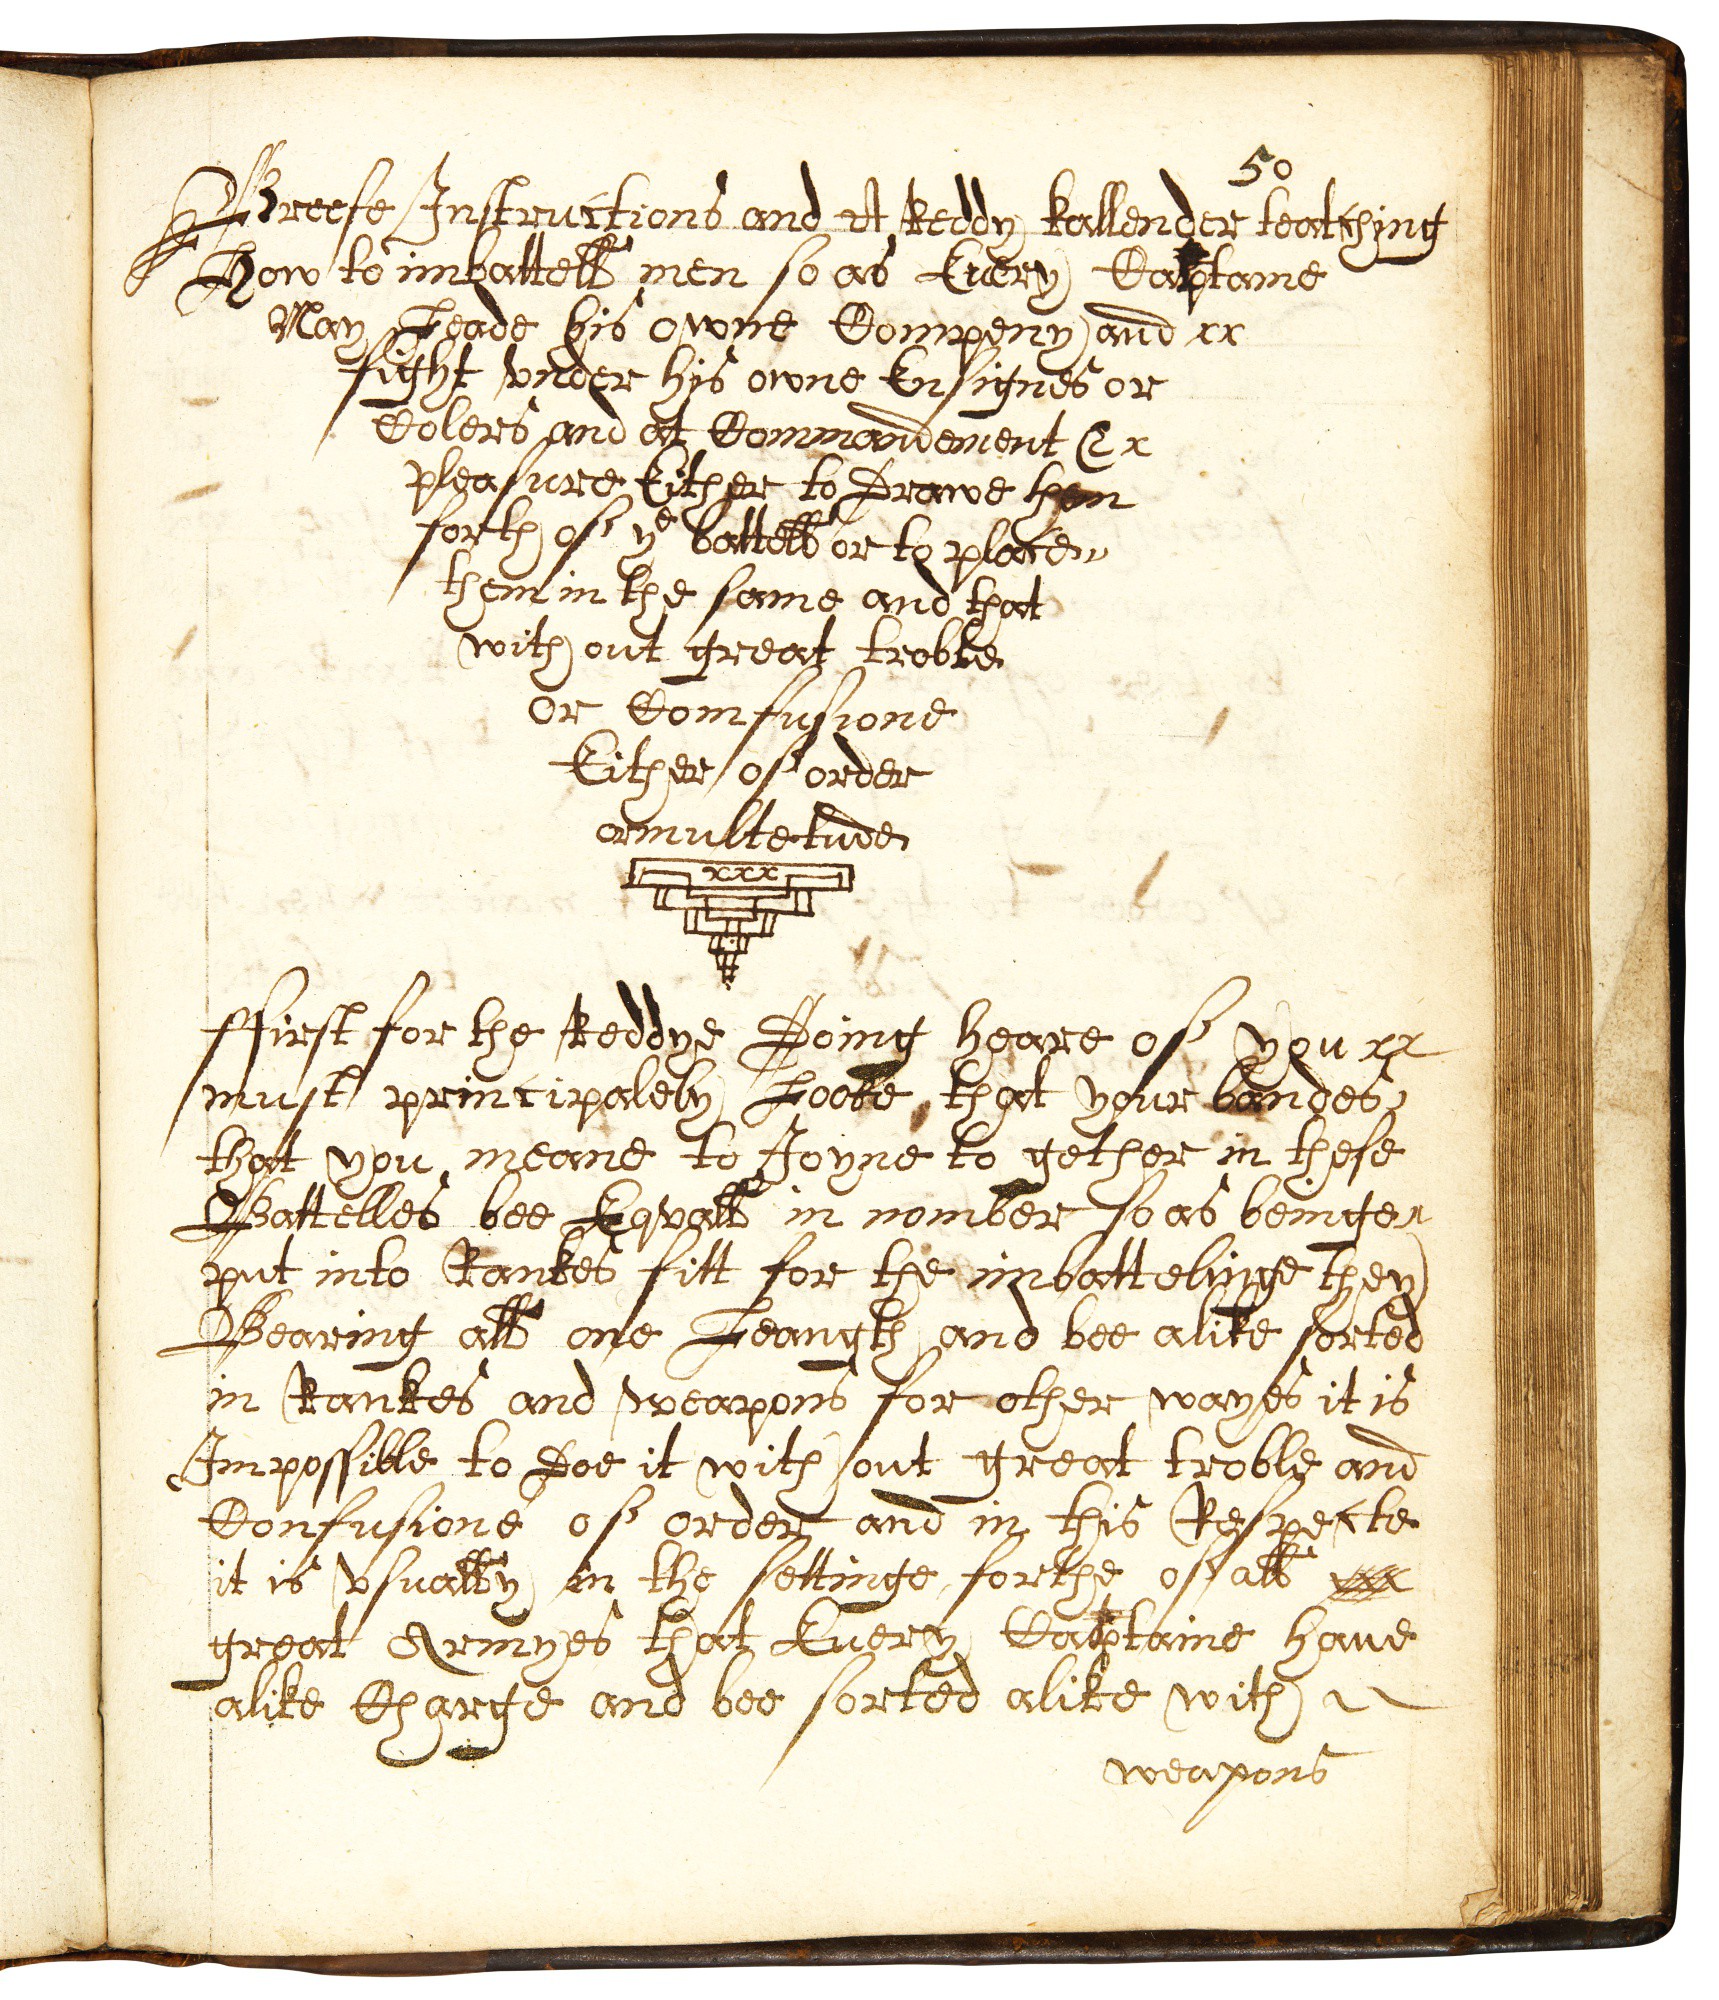 50
Breefe Instructions and A Reddy kallender teatching
How to imbattell men so as Euery Captame
May Leade his owne Compeny and xx
fight vnder his owne Ensignes or
Colers and at Commandement & x
pleasure Either to Drawe them
forth of ye battell or to place
them in the same and that
with out great trobble
Or Comfusione
Either of order
or multetude
xxx
ffirst for the Reddye Doing heare of you xx
must principalely Looke that your bandes
that you meane to Joyne to gether in these
Battelles bee Eqvall in nomber so as beinge
put into Rankes fitt for the imbattelinge they
Bearing all one Leangth and bee alike sorted
in Rankes and weapons for other wayes it is
Impossible to Doe it with out great troble and
Confusione of order and in this Respecte
it is vsually in the settinge forthe of all xxx
great Armyes that Euery Captaine haue
alike Charge and bee sorted alike with
weapons